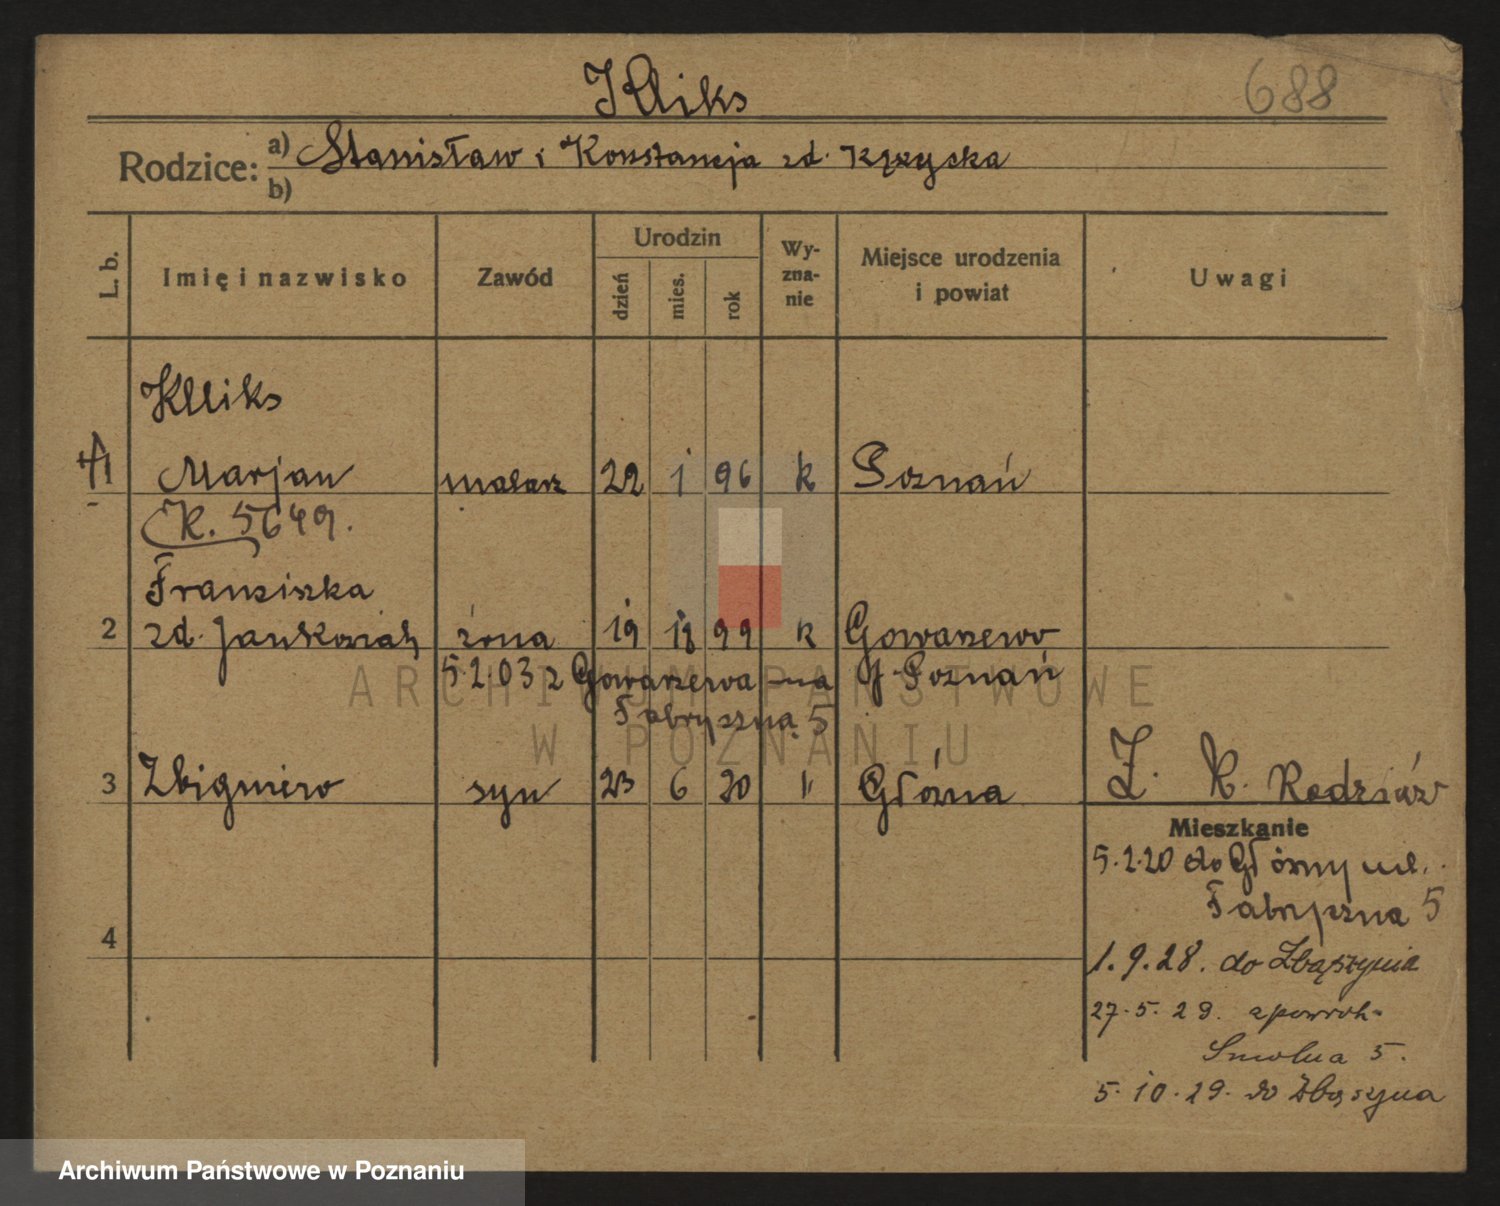 Kliks
688
Rodzice: a) Stanisław i Konstancja zd. Krzycka
b)
L. b. Imię i nazwisko Zawód Urodzin dzień mies. rok Wy-zna-nie Miejsce urodzenia i powiat Uwagi
Kliks
1 Marjan malarz 22 1 96 k Poznań
K. 5649.
Franciszka
2 zd. Jankowiak żona 19 99 k Gowarzewo
5.2.03 z Gowarzewa na p. Poznań
Fabryczna 5
3 Zbigniew syn 23 6 20 " Główna
Z. K. Rodziców
Mieszkanie
5.2.20 do Główny ul.
Fabryczna 5
4
1.9.28. do Zbąszynia
27.5.29. z powrot.
Smolna 5.
5.10.29. do Zbąszyna
ARCHIWUM PAŃSTWOWE
W POZNANIU
Archiwum Państwowe w Poznaniu